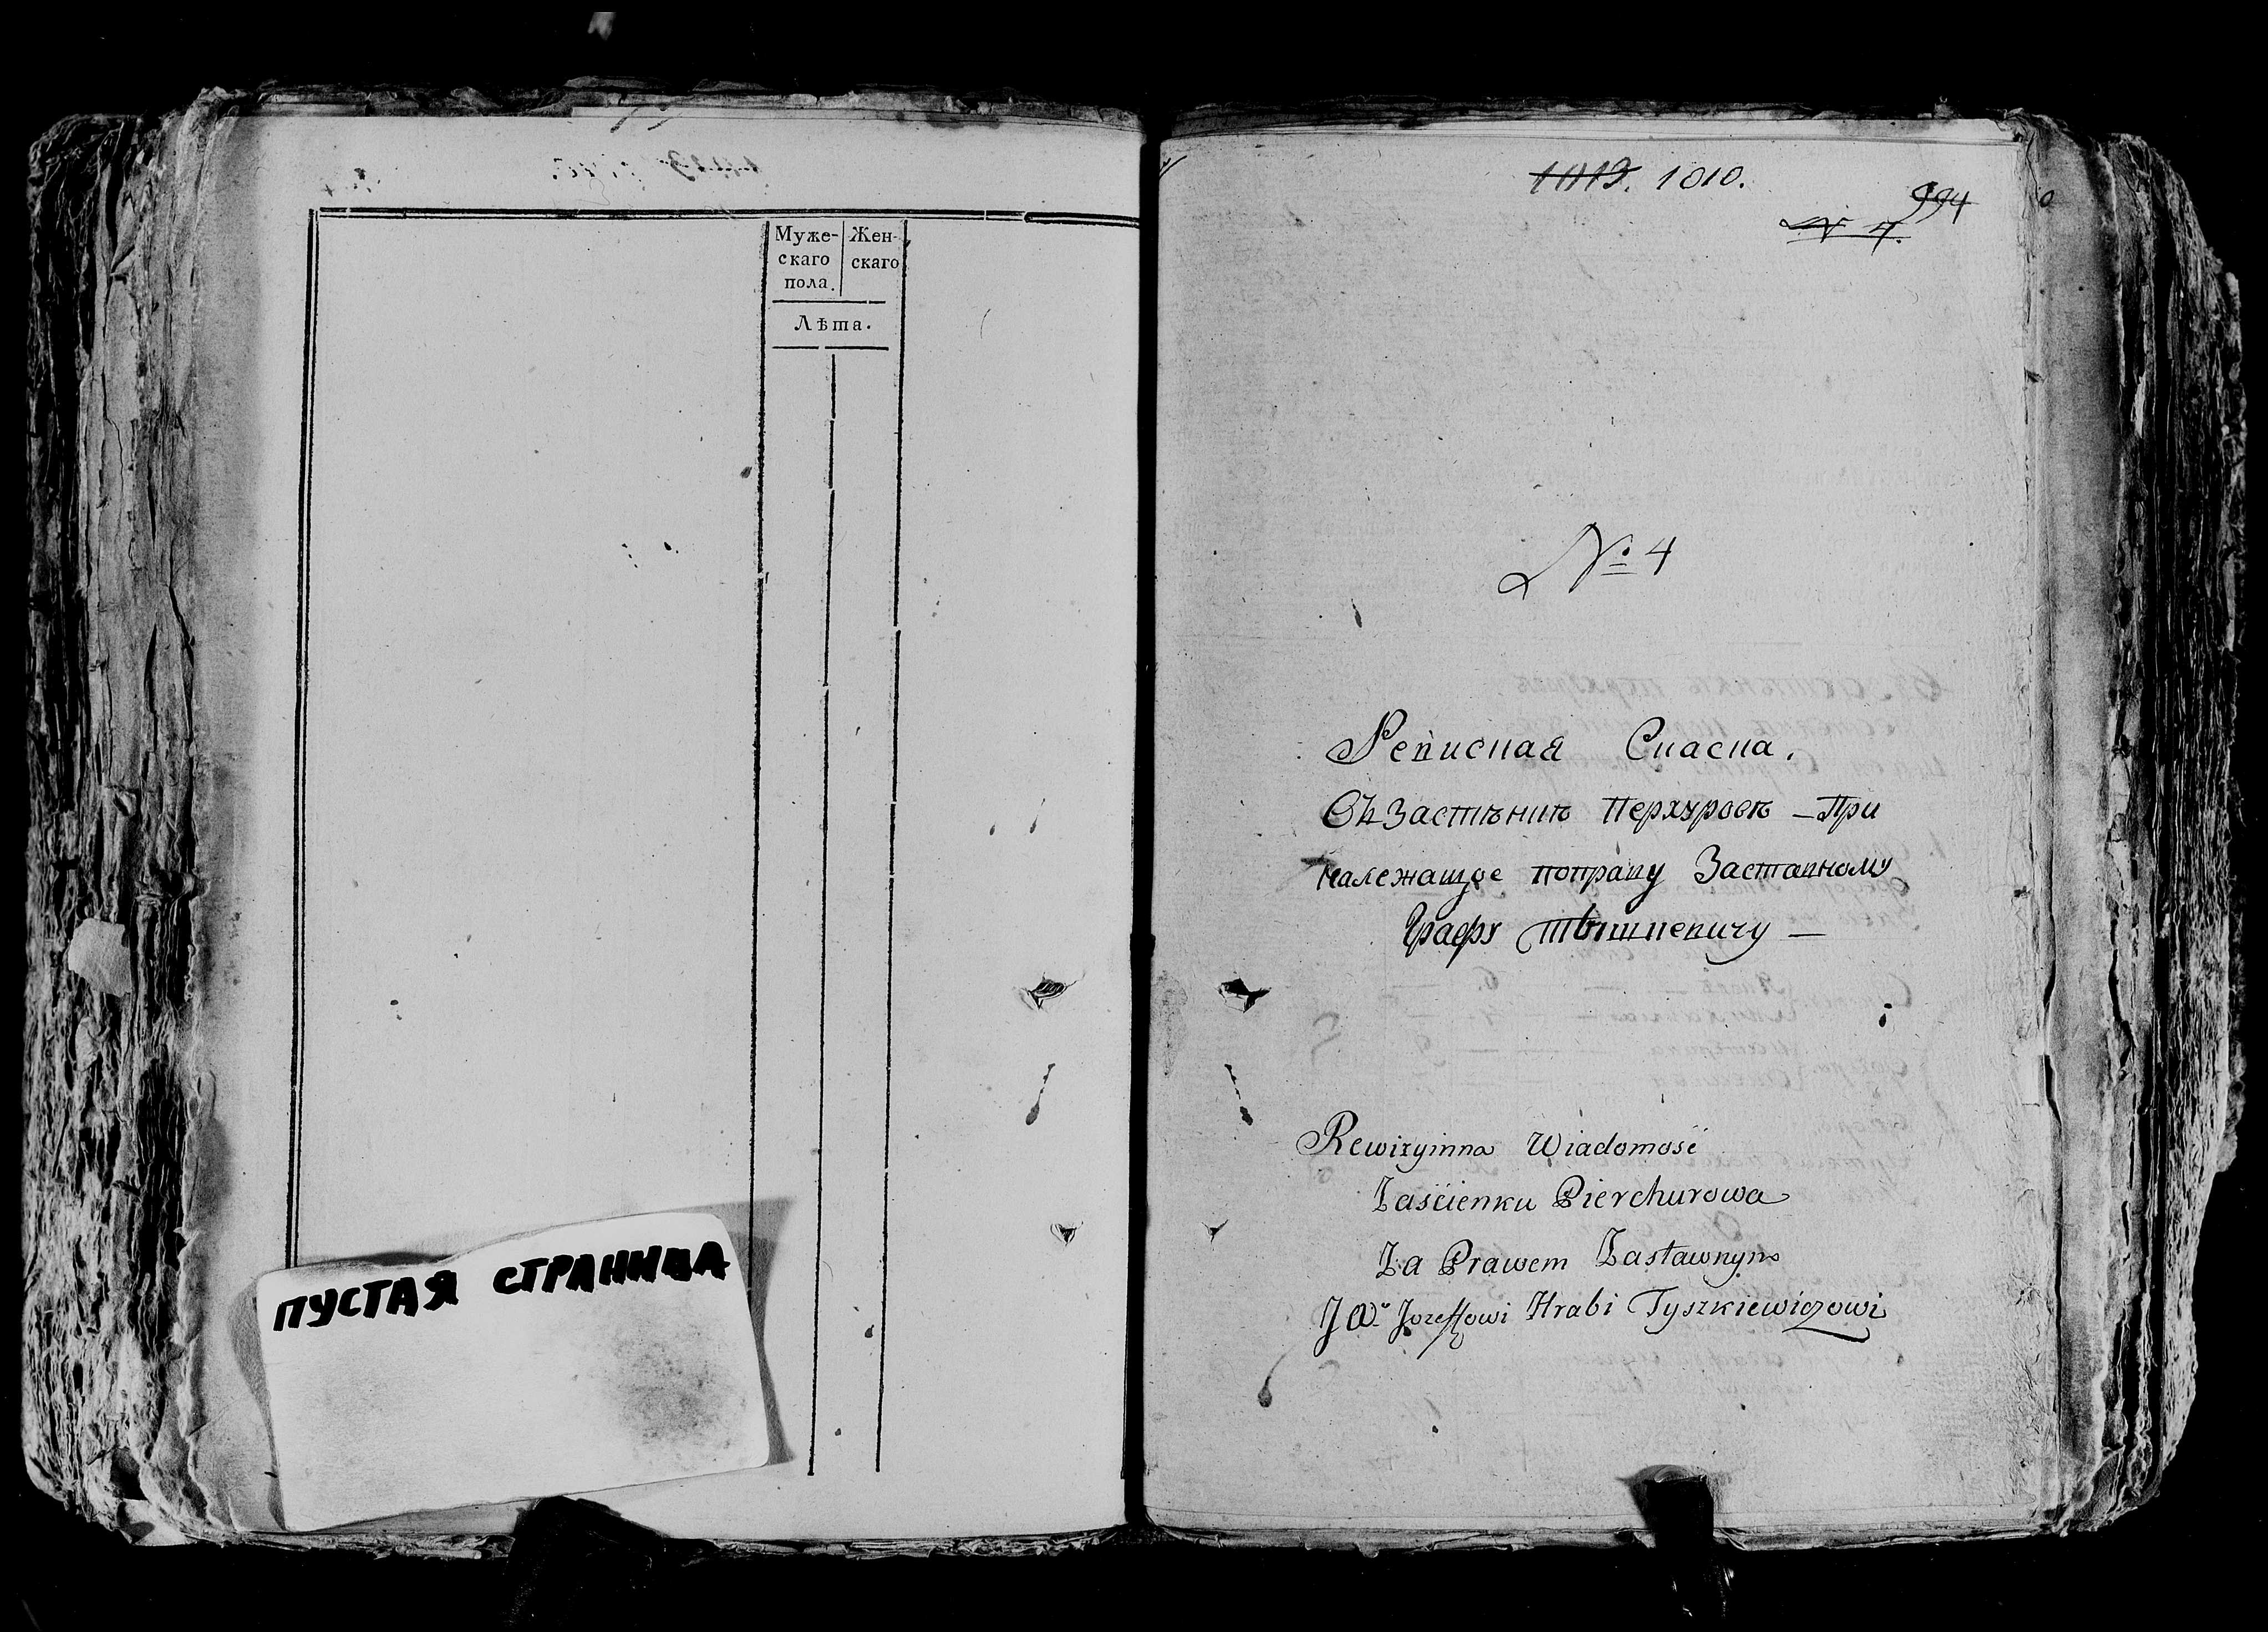 Муже-
скаго
пола.
Жен-
скаго
Лѣта.
ПУСТАЯ СТРАНИЦА
1012. 1010.
994
№ 4.
№ 4
Ревиская Скаска.
Съ Застѣнкѣ Перхуровѣ – При
належащое поправу Заставному
Графу Тышкевичу —
Rewizyinna Wiadomość
Zaścienku Pierchurowa
Za Prawem Zastawnym
JW. Jozeffowi Hrabi Tyszkiewiczowi